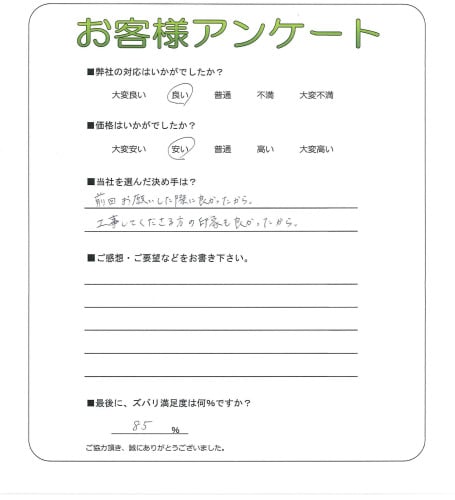 お客様アンケート
■弊社の対応はいかがでしたか？
大変良い 良い 普通 不満 大変不満
■価格はいかがでしたか？
大変安い 安い 普通 高い 大変高い
■当社を選んだ決め手は？
前回お願いした際に良かったから。
工事してくださる方の印象も良かったから。
■ご感想・ご要望などをお書き下さい。
■最後に、ズバリ満足度は何%ですか？
85 %
ご協力頂き、誠にありがとうございました。